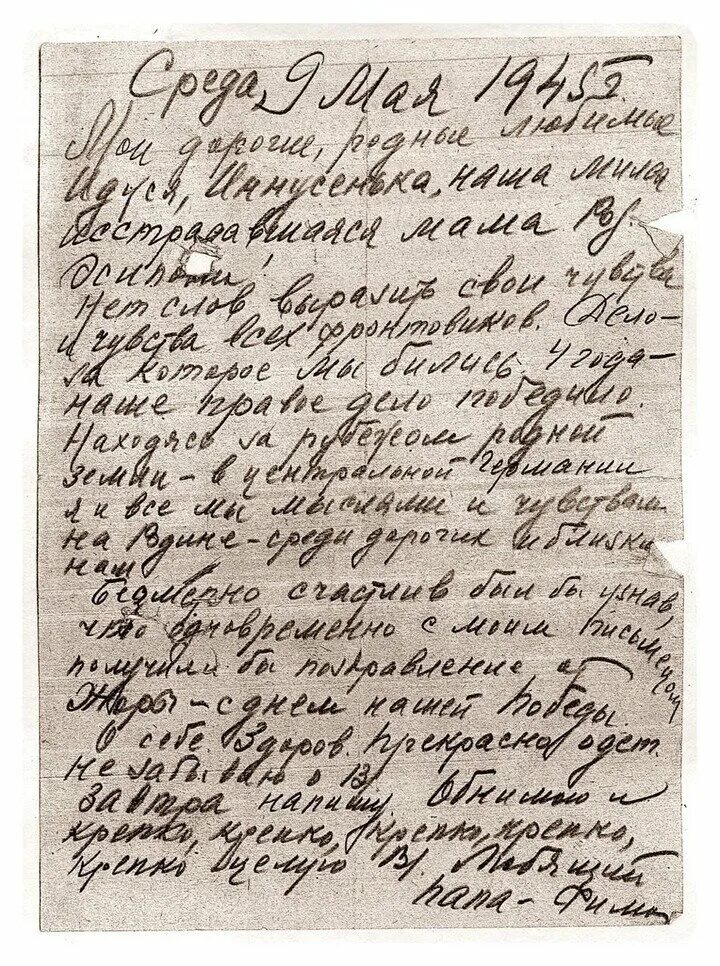 Среда, 9 Мая 1945 г.
Мои дорогие, родные любимые
Идуся, Иннусенька, наша милая
исстрадавшаяся мама
Осиповна!
Нет слов выразить свои чувства
и чувства всех фронтовиков. Дело –
за которое мы бились 4 года –
наше правое дело победило.
Находясь за рубежом родной
земли – в центральной Германии
я и все мы мыслями и чувствами
на Родине – среди дорогих и близких
нам.
Безмерно счастлив был бы узнав,
что одновременно с моим письмецом
получили бы поздравление от
Жоры – с днем нашей Победы.
О себе. Здоров. Прекрасно одет.
Не забываю о
Завтра напишу. Обнимаю и
крепко, крепко, крепко, крепко,
крепко целую В. Любящий
папа – Фима